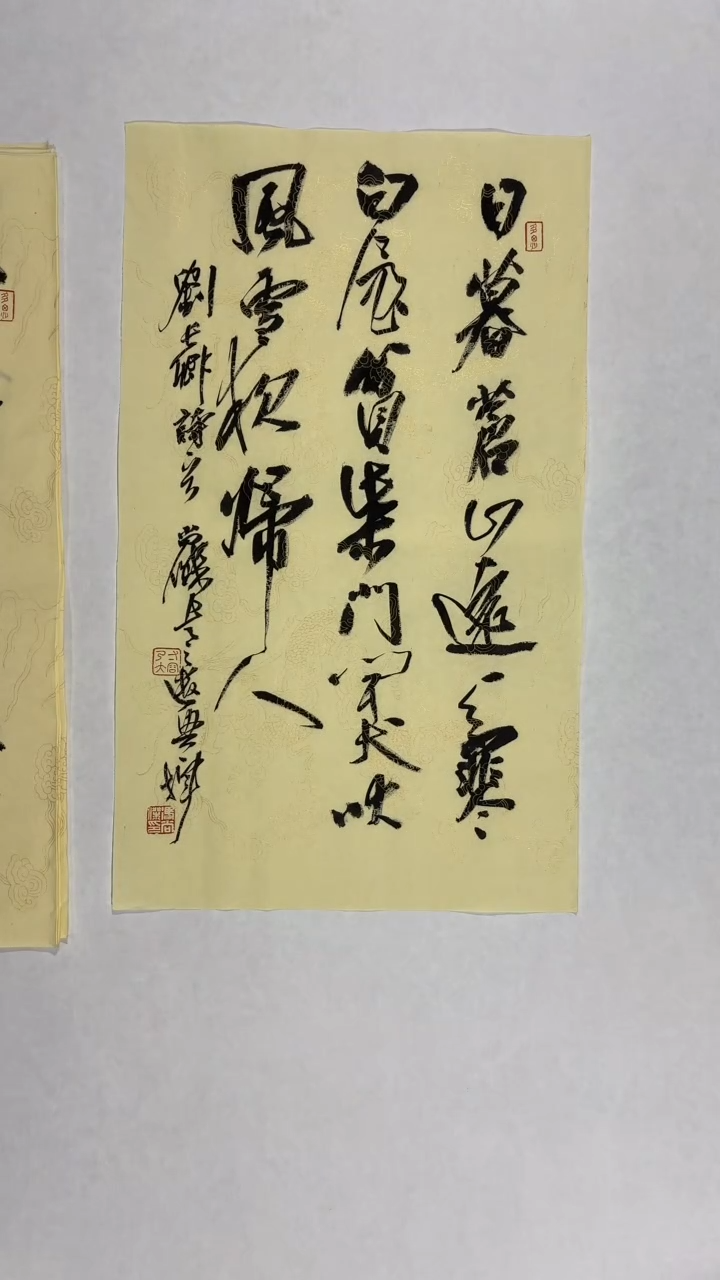 日暮蒼山遠天寒
白屋貧柴門聞犬吠
風雪夜歸人
劉長卿詩